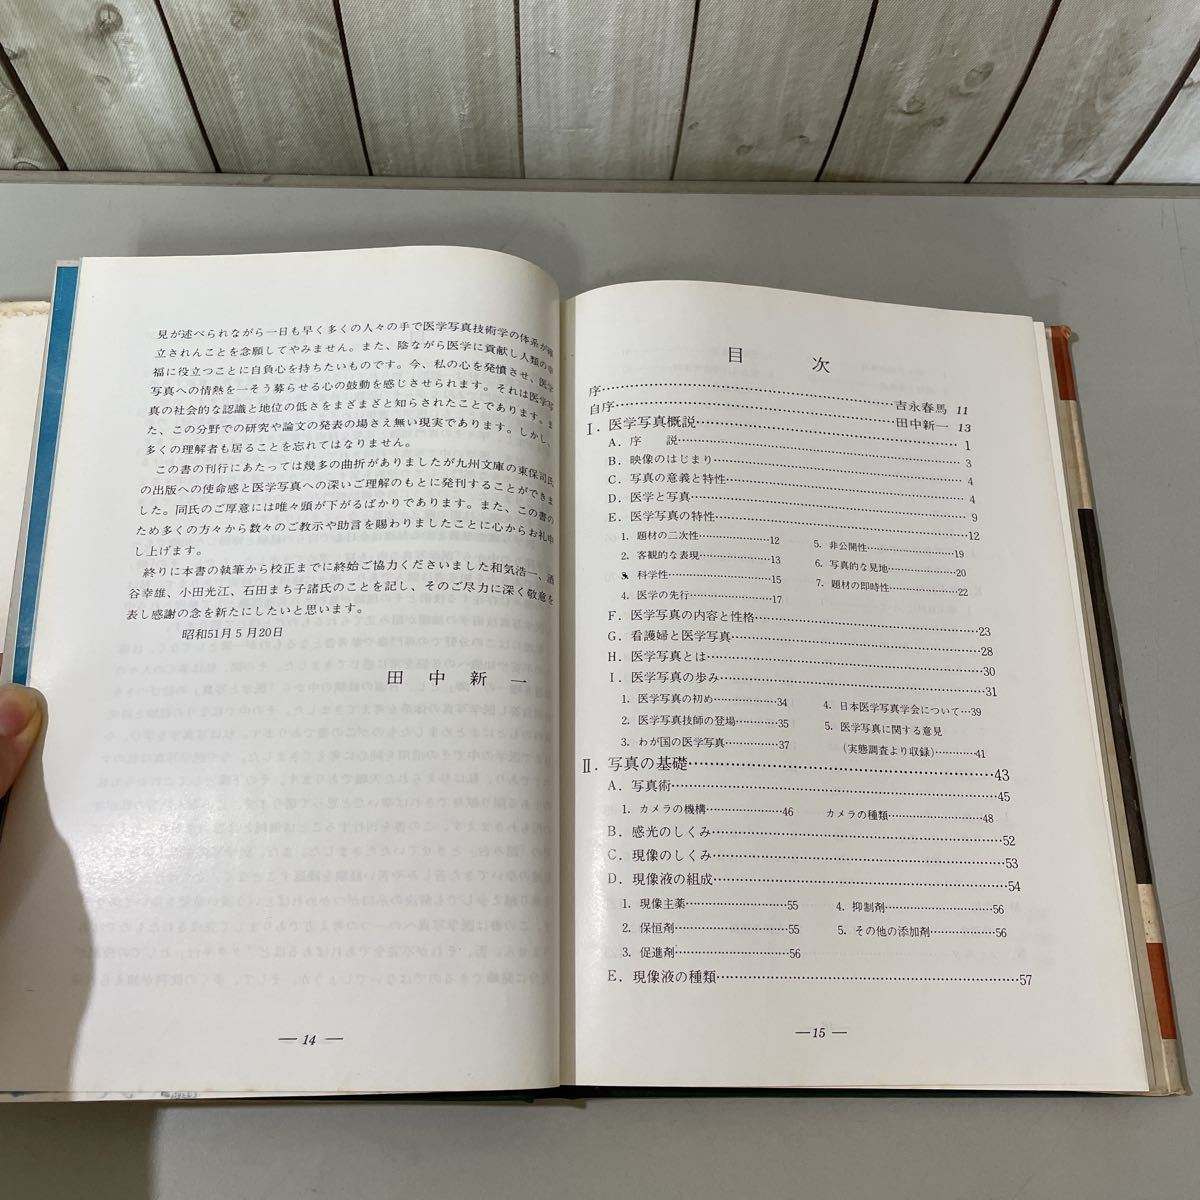 見が述べられながら一日も早く多くの人々の手で医学写真技術学の体系が確
立されんことを念願してやみません。また、陰ながら医学に貢献し人類の幸
福に役立つことに自負心を持ちたいものです。今、私の心を発憤させ、医学
写真への情熱を一そう募らせる心の鼓動を感じさせられます。それは医学写
真の社会的な認識と地位の低さをまざまざと知らされたことであります。ま
た、この分野での研究や論文の発表の場さえ無い現実であります。しかし、
多くの理解者も居ることを忘れてはなりません。
この書の刊行にあたっては幾多の曲折がありましたが九州文庫の東保司氏
の出版への使命感と医学写真への深いご理解のもとに発刊することができま
した。同氏のご厚意には唯々頭が下がるばかりであります。また、この書の
ため多くの方々から数々のご教示や助言を賜わりましたことに心からお礼申
し上げます。
終りに本書の執筆から校正までに終始ご協力くださいました和気浩一、酒
谷幸雄、小田光江、石田まち子諸氏のことを記し、そのご尽力に深く敬意を
表し感謝の念を新たにしたいと思います。
昭和51月5月20日
田中新一
— 14 —
目次
序……吉永春馬 11
自序……田中新一 13
Ⅰ. 医学写真概説……1
A. 序 説……3
B. 映像のはじまり……4
C. 写真の意義と特性……4
D. 医学と写真……9
E. 医学写真の特性……12
1. 題材の二次性……12
2. 客観的な表現……13
科学性……15
4. 医学の先行……17
5. 非公開性……19
6. 写真的な見地……20
7. 題材の即時性……22
F. 医学写真の内容と性格……23
G. 看護婦と医学写真……28
H. 医学写真とは……30
I. 医学写真の歩み……31
1. 医学写真の初め……34
2. 医学写真技師の登場……35
3. わが国の医学写真……37
4. 日本医学写真学会について…39
5. 医学写真に関する意見
(実態調査より収録)……41
Ⅱ. 写真の基礎……43
A. 写真術……45
1. カメラの機構……46
カメラの種類……48
B. 感光のしくみ……52
C. 現像のしくみ……53
D. 現像液の組成……54
1. 現像主薬……55
2. 保恒剤……55
3. 促進剤……56
4. 抑制剤……56
5. その他の添加剤……56
E. 現像液の種類……57
—15—